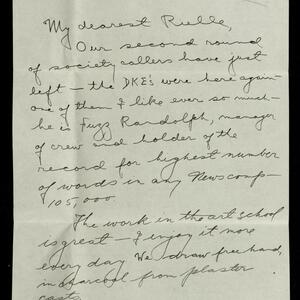 My dearest Rulle,
Our second round
of society callers have just
left — the DKE's were here again —
one of them I like ever so much —
he is Fuzz Randolph, manager
of crew and holder of the
record for highest number
of words in any News comp —
105,000.
The work in the art school
is great — I enjoy it more
every day We draw freehand,
in charcoal from plaster
casts.